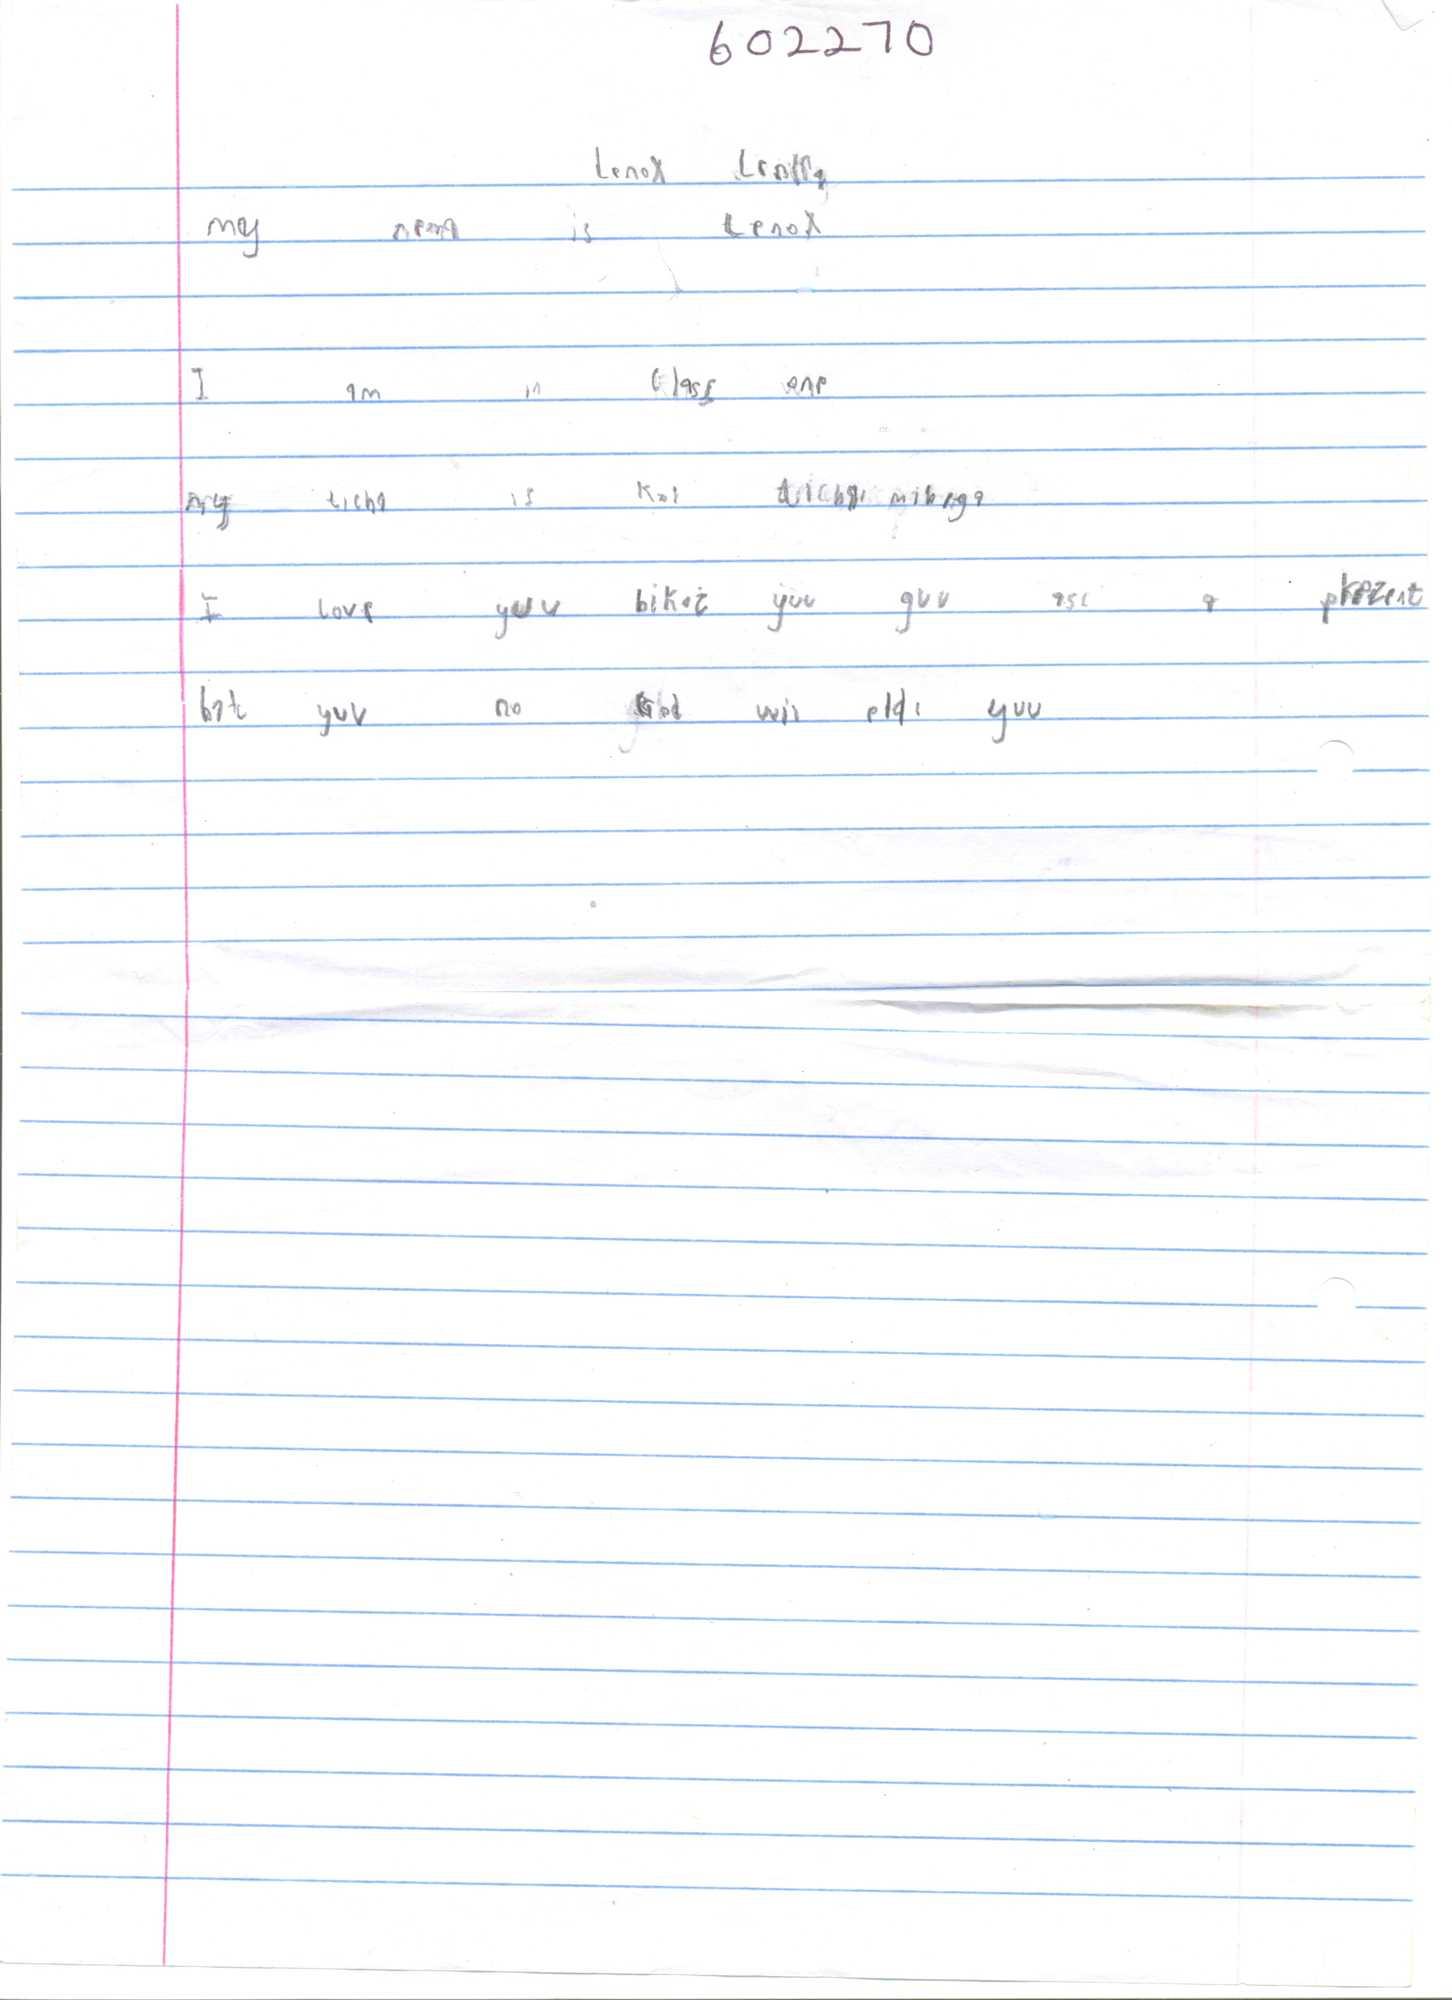 602270
Lenox
my nema is Lenox
I am in Class one
my ticha is Kol ticha mibega
I love yuu bikoz yuu guv asi a prezent
bat yuu no God wil eldi yuu